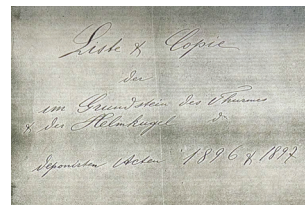 Liste & Copie
der
im Grundstein des Thurmes
& der Helmkugel
deponirten Acten 1896 & 1897